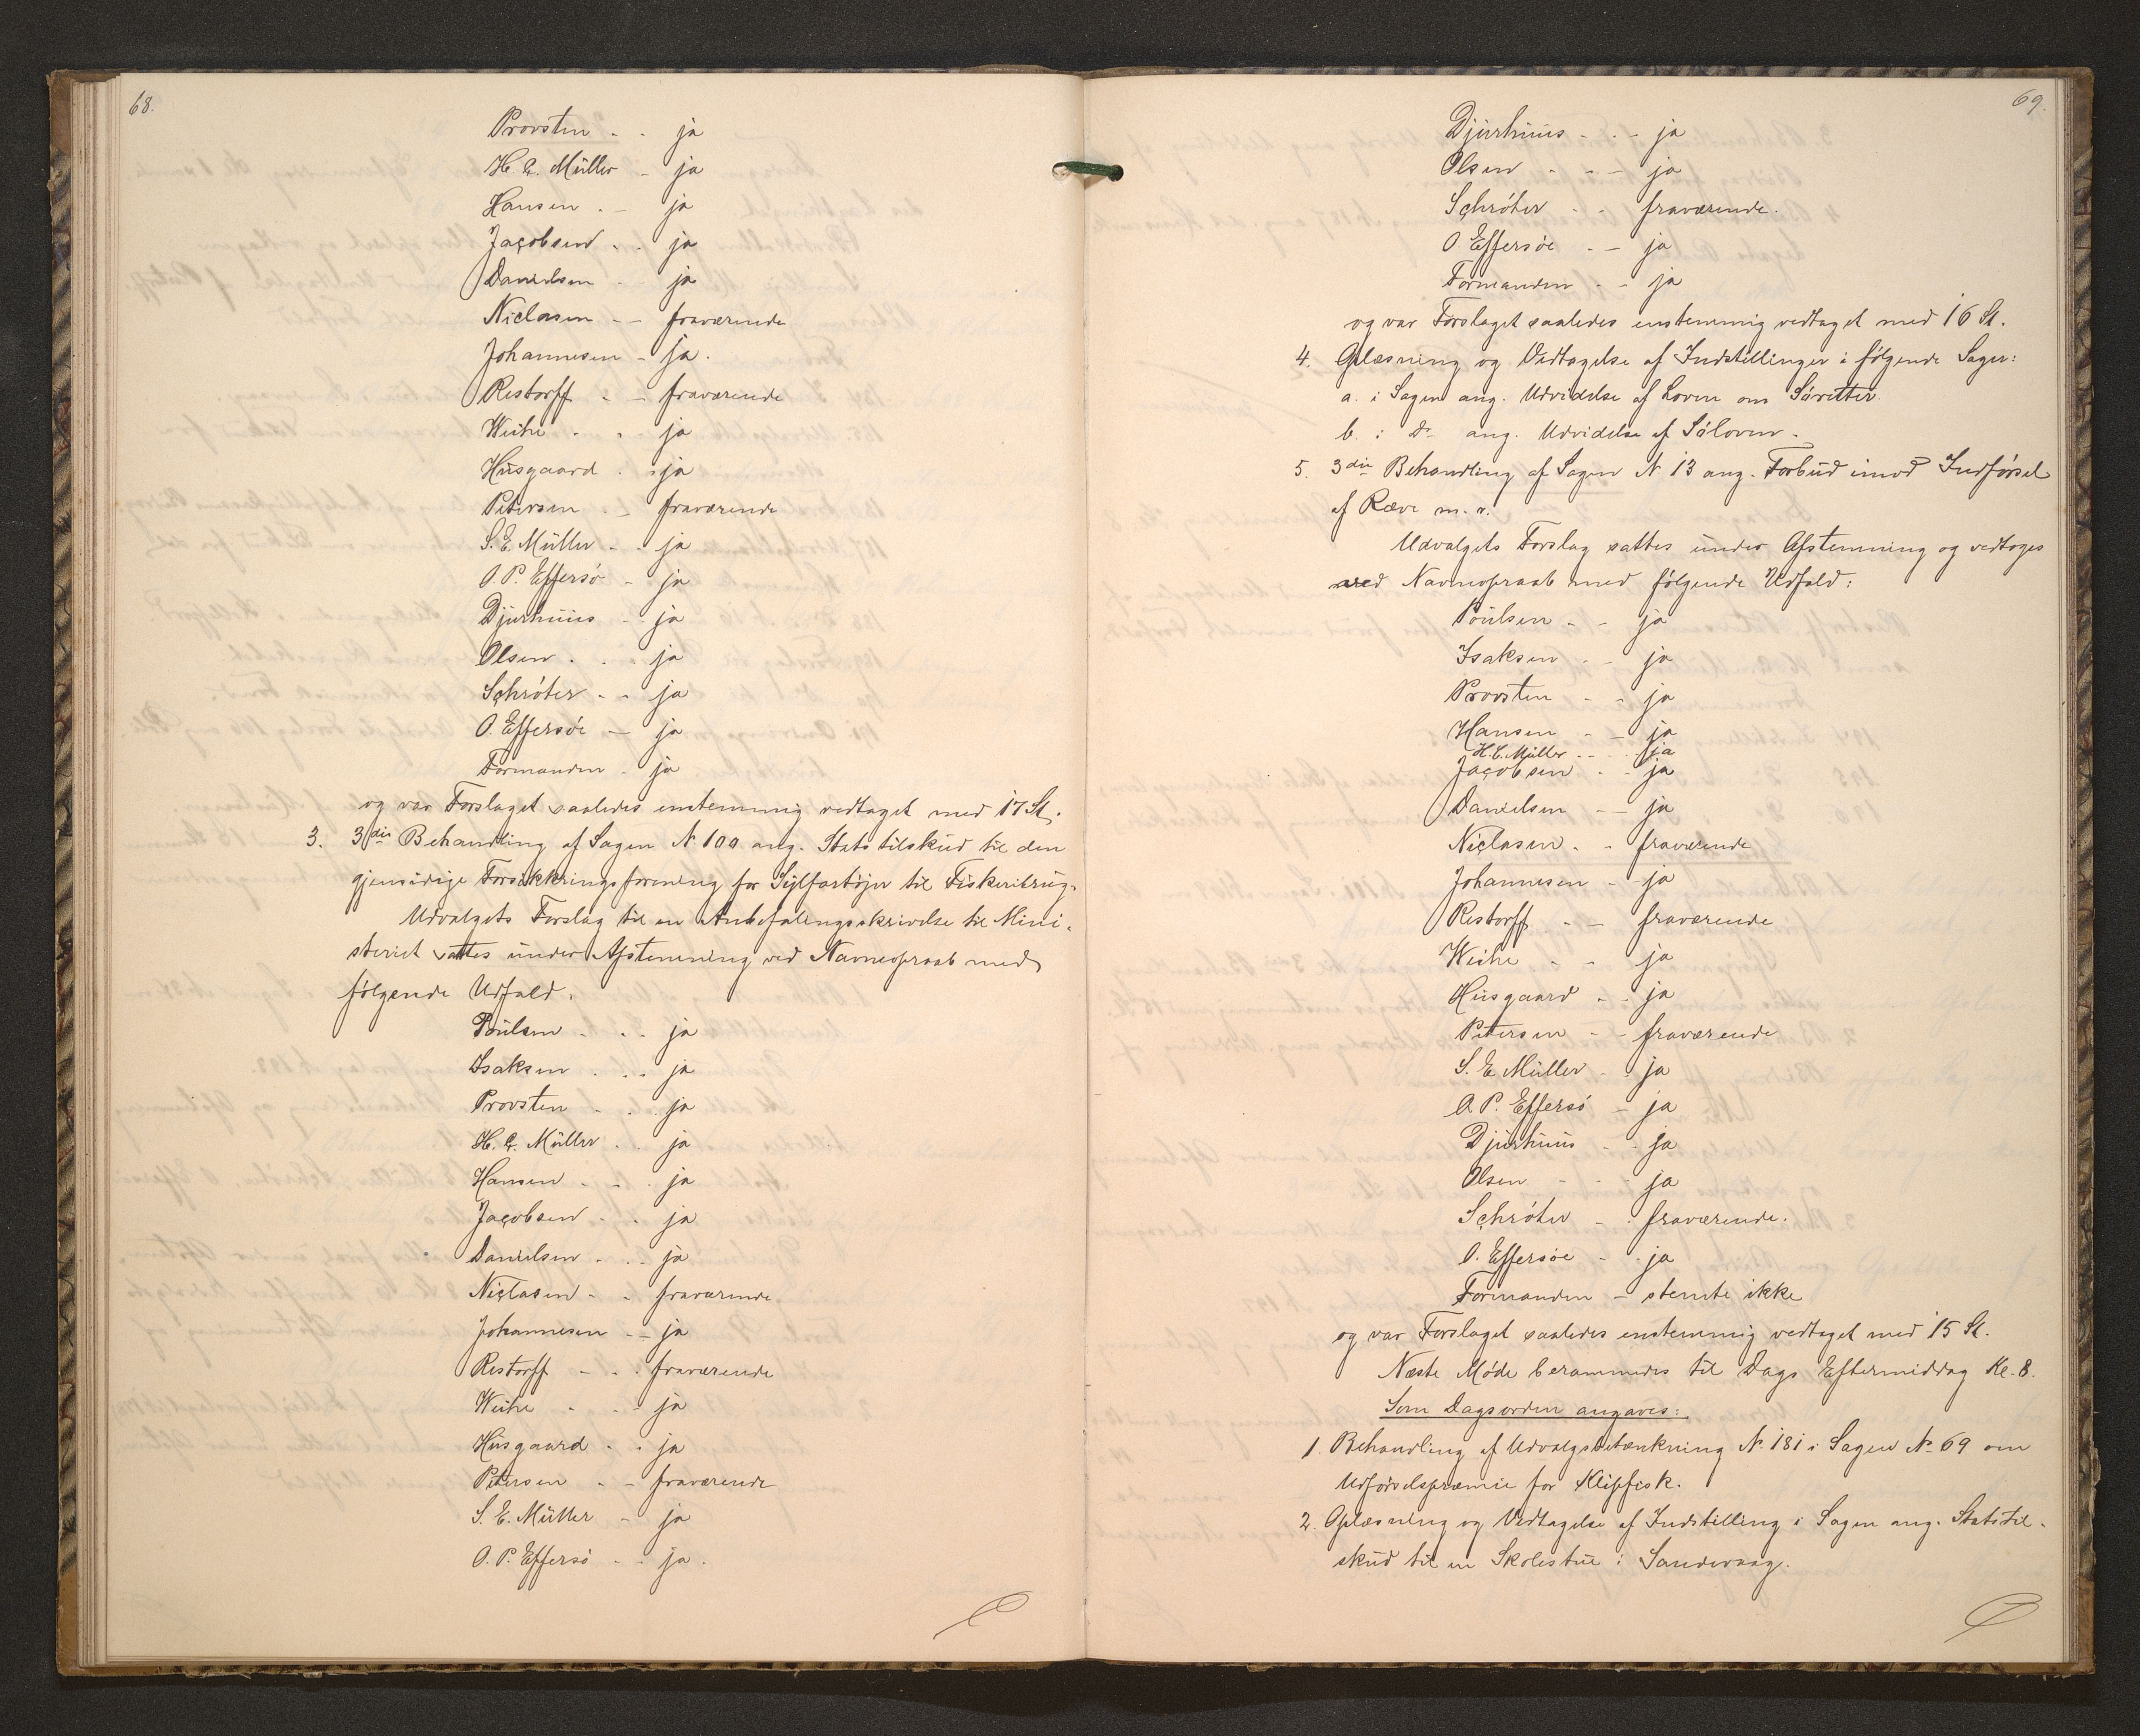 68.
Provsten - - ja
H. C. Müller - ja
Hansen . - ja
Jacobsen . . ja
Danielsen - - ja
Niclasen - - fraværende
Johannesen - ja.
Restorff - - fraværende
Weihe - - ja
Husgaard . - ja
Petersen . - fraværende
S. E. Müller - - ja
O. P. Effersö - ja
Djurhuus - - ja
Olsen . . . ja
Schröter - - ja
O. Effersöe - ja
Formanden - ja
og var Forslaget saaledes enstemmig vedtaget med 17 St.
3. 3die Behandling af Sagen N. 100 ang. Statstilskud til den
gjensidige Forsikkringsforening for Sejlfartöjer til Fiskeribrug.
Udvalgets Forslag til en Anbefalingsskrivelse til Mini-
steriet sattes under Afstemning ved Navneopraab med
følgende Udfald.
Poulsen - . . ja
Isaksen . . . ja
Provsten - . . ja
H. C. Müller . . ja
Hansen - - . ja
Jacobsen - . ja
Danielsen - . . ja
Niclasen - - fraværende
Johannesen - - ja
Restorff - - . fraværende
Weihe - - - ja
Husgaard - . ja
Petersen - - fraværende
S. E. Müller - ja
O. P. Effersö - - ja.
69.
Djurhuus - - - ja
Olsen - - - ja
Schröter - - fraværende.
O. Effersöe - - ja
Formanden - - ja
og var Forslaget saaledes enstemmig vedtaget med 16 St.
4. Oplæsning og Vedtagelse af Indstillinger i følgende Sager:
a. i Sagen ang. Udvidelse af Loven om Söretter.
b. i do ang. Udvidelse af Söloven.
5. 3die Behandling af Sagen N. 13 ang. Forbud imod Indförsel
af Ræve m. v.
Udvalgets Forslag sattes under Afstemning og vedtoges
ved Navneopraab med følgende Udfald:
Poulsen - - ja
Isaksen - - ja
Provsten - - ja
Hansen - - ja
H. C. Müller - - - ja
Jacobsen - - ja
Danielsen - - ja
Niclasen - - fraværende
Johannesen - ja
Restorff - - fraværende
Weihe - - ja
Husgaard - . ja
Petersen - - fraværende
S. E. Müller - . ja
O. P. Effersö - ja
Djurhuus - - ja
Olsen - - ja
Schröter - . fraværende.
O. Effersöe - - ja
Formanden - stemte ikke
og var Forslaget saaledes enstemmig vedtaget med 15 St.
Næste Möde berammedes til Dags Eftermiddag Kl. 8.
Som Dagsorden angaves:
1. Behandling af Udvalgsbetænkning N. 181 i Sagen No 69 om
Udförselspræmie for Klipfisk.
2. Oplæsning og Vedtagelse af Indstilling i Sagen ang. Statstil-
skud til en Skolestue i Sandevaag.